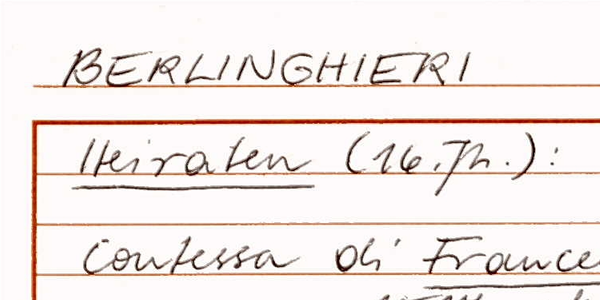 BERLINGHIERI
Heiraten (16. Jh.):
Contessa di France